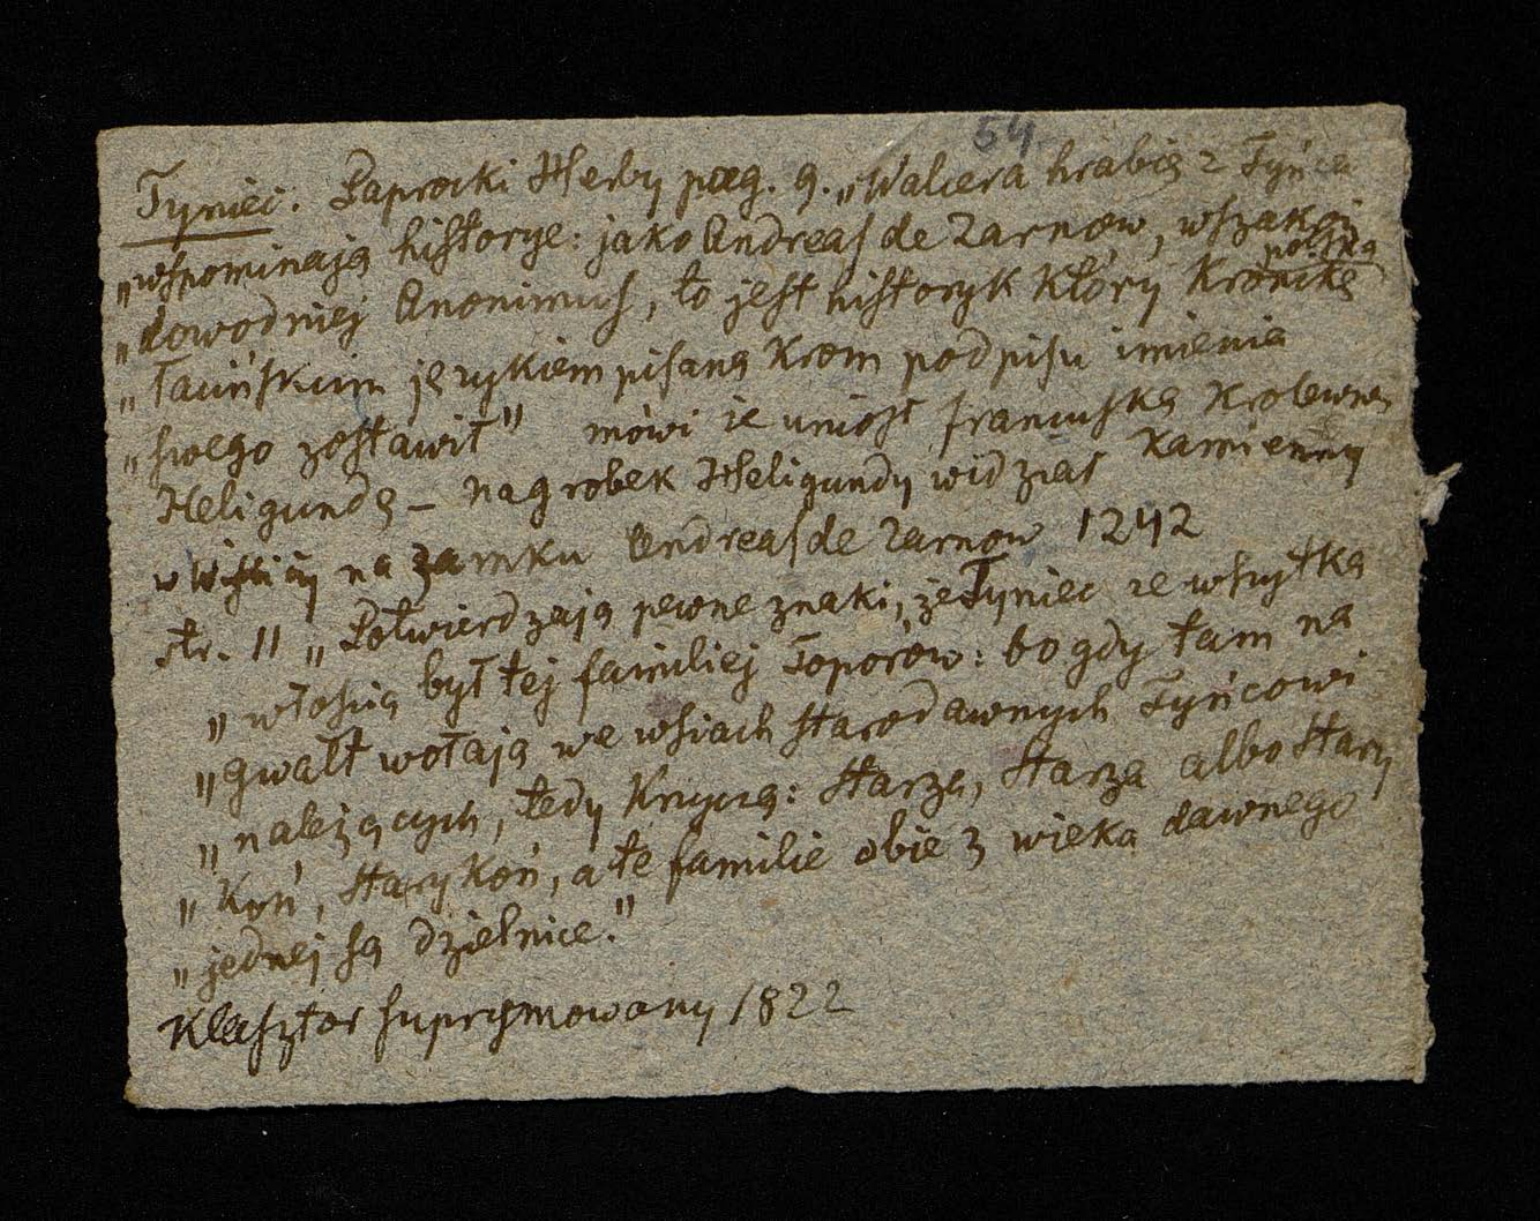 54.
Tyniec. Paprocki Herby pag. 9. „Walcera hrabię z Tyńca
„wspominają historye: jako Andreas de Zarnow, wszakoż
„dowodniej Anonimus, to jest historyk który Kronikę polską
„łacińskim językiem pisaną krom podpisu imienia
„swego zostawił" mówi że uniósł francuską Krolewnę
Heligundę – nagrobek Heligundy widział kamienny
w Wiślicy na zamku Andreas de Zarnow 1242
str. 11 „Potwierdzają pewne znaki, że Tyniec ze wszytką
„włością był tej familiej Toporow: bo gdy tam na
„gwałt wołają we wsiach starodawnych Tyńcowi
„należących, tedy Krzyczą: Starza, Starza albo Stary
„Koń, Stary Koń, a te familie obie z wieka dawnego
„jednej są dzielnice."
Klasztor suprymowany 1822